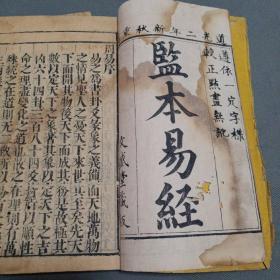 道光二年新秋重
遵依一定字樣
校正點畫無訛
監本易經
堂藏板
周易序
易之為書卦爻彖象之義備而天地萬物
之情見聖人之憂天下來世其至矣先天
下而開其物後天下而成其務是故極其
數以定天下之象著其象以定天下之吉
凶六十四卦三百八十四爻皆所以順性
命之理盡變化之道也散之在理則有萬
殊統之在道則无二致所以